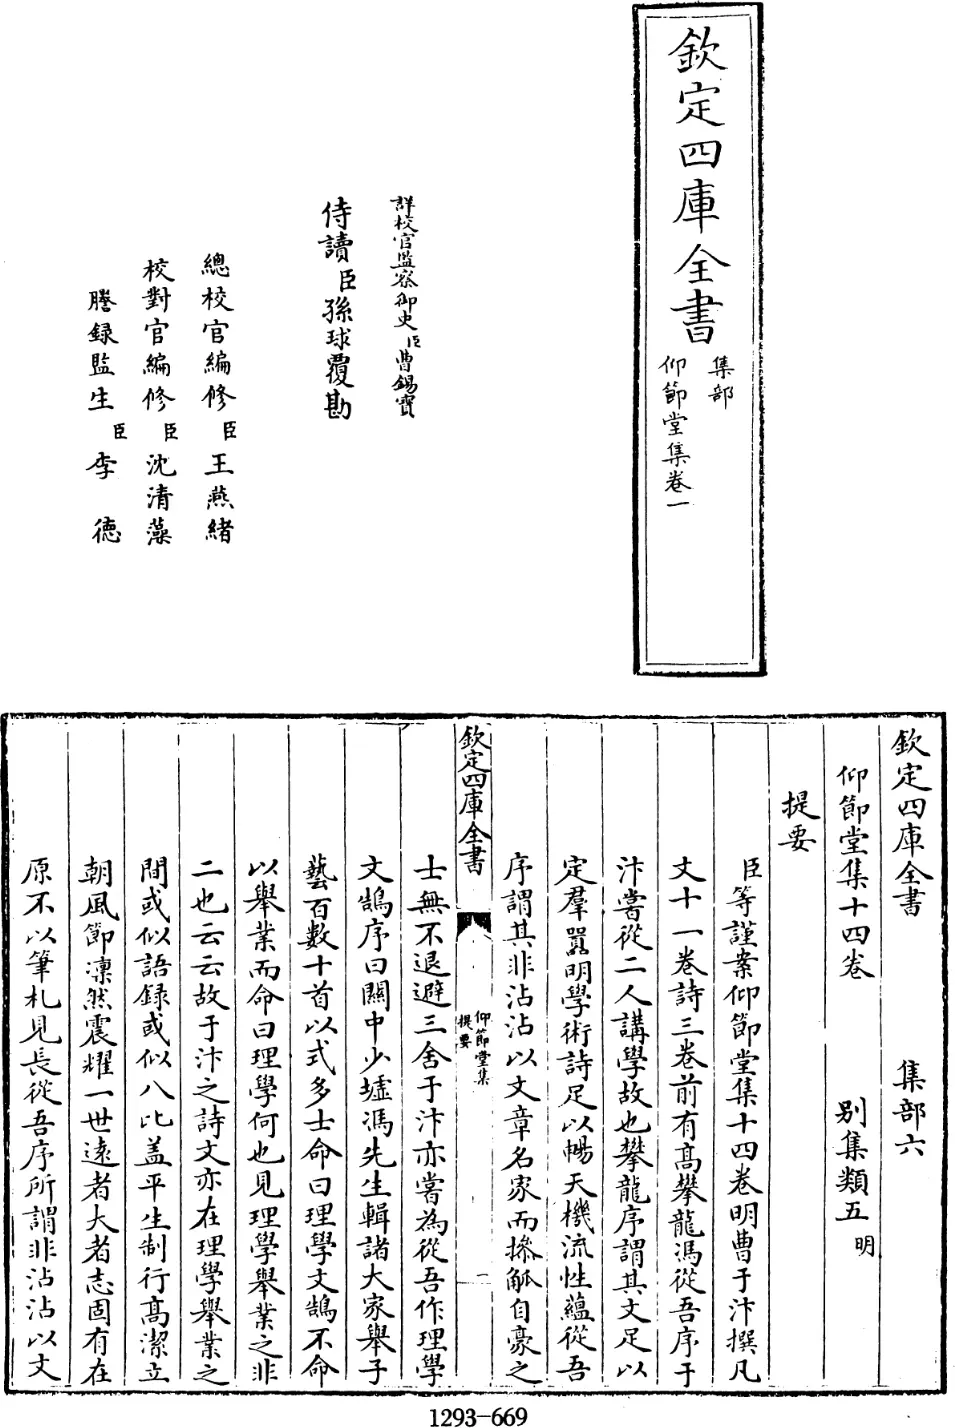 欽定四庫全書
集部
仰節堂集卷一
詳校官監察御史臣曹錫寶
侍讀臣孫球覆勘
總校官編修臣王燕緒
校對官編修臣沈清藻
謄録監生臣李德
欽定四庫全書 集部六
仰節堂集十四卷 別集類五明
提要
臣等謹案仰節堂集十四卷明曹于汴撰凡
文十一卷詩三卷前有髙攀龍馮從吾序于
汴嘗從二人講學故也攀龍序謂其文足以
定羣囂明學術詩足以暢天機流性蘊從吾
序謂其非沾沾以文章名家而摻觚自豪之
欽定四庫全書
仰節堂集
提要
一
士無不退避三舍于汴亦嘗為從吾作理學
文鵠序曰關中少墟馮先生輯諸大家舉子
藝百數十首以式多士命曰理學文鵠不命
以舉業而命曰理學何也見理學舉業之非
二也云云故于汴之詩文亦在理學舉業之
間或似語録或似八比盖平生制行髙潔立
朝風節凛然震耀一世遠者大者志固有在
原不以筆札見長從吾序所謂非沾沾以文
1293-669